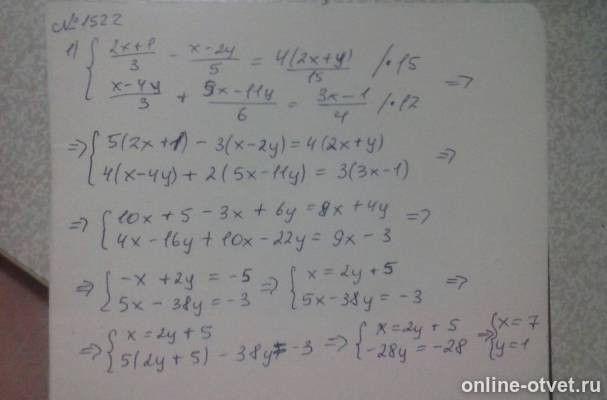 №1522
1) { (2x+1)/3 - (x-2y)/5 = 4(2x+y)/15 /•15
{ (x-4y)/3 + (5x-11y)/6 = (3x-1)/4 /•12 =>
=> { 5(2x+1) - 3(x-2y) = 4(2x+y)
{ 4(x-4y) + 2(5x-11y) = 3(3x-1) =>
=> { 10x + 5 - 3x + 6y = 8x + 4y =>
{ 4x - 16y + 10x - 22y = 9x - 3
=> { -x + 2y = -5 => { x = 2y + 5 =>
{ 5x - 38y = -3 { 5x - 38y = -3
=> { x = 2y + 5 => { x = 2y + 5 => { x = 7
{ 5(2y + 5) - 38y = -3 { -28y = -28 { y = 1
online-otvet.ru